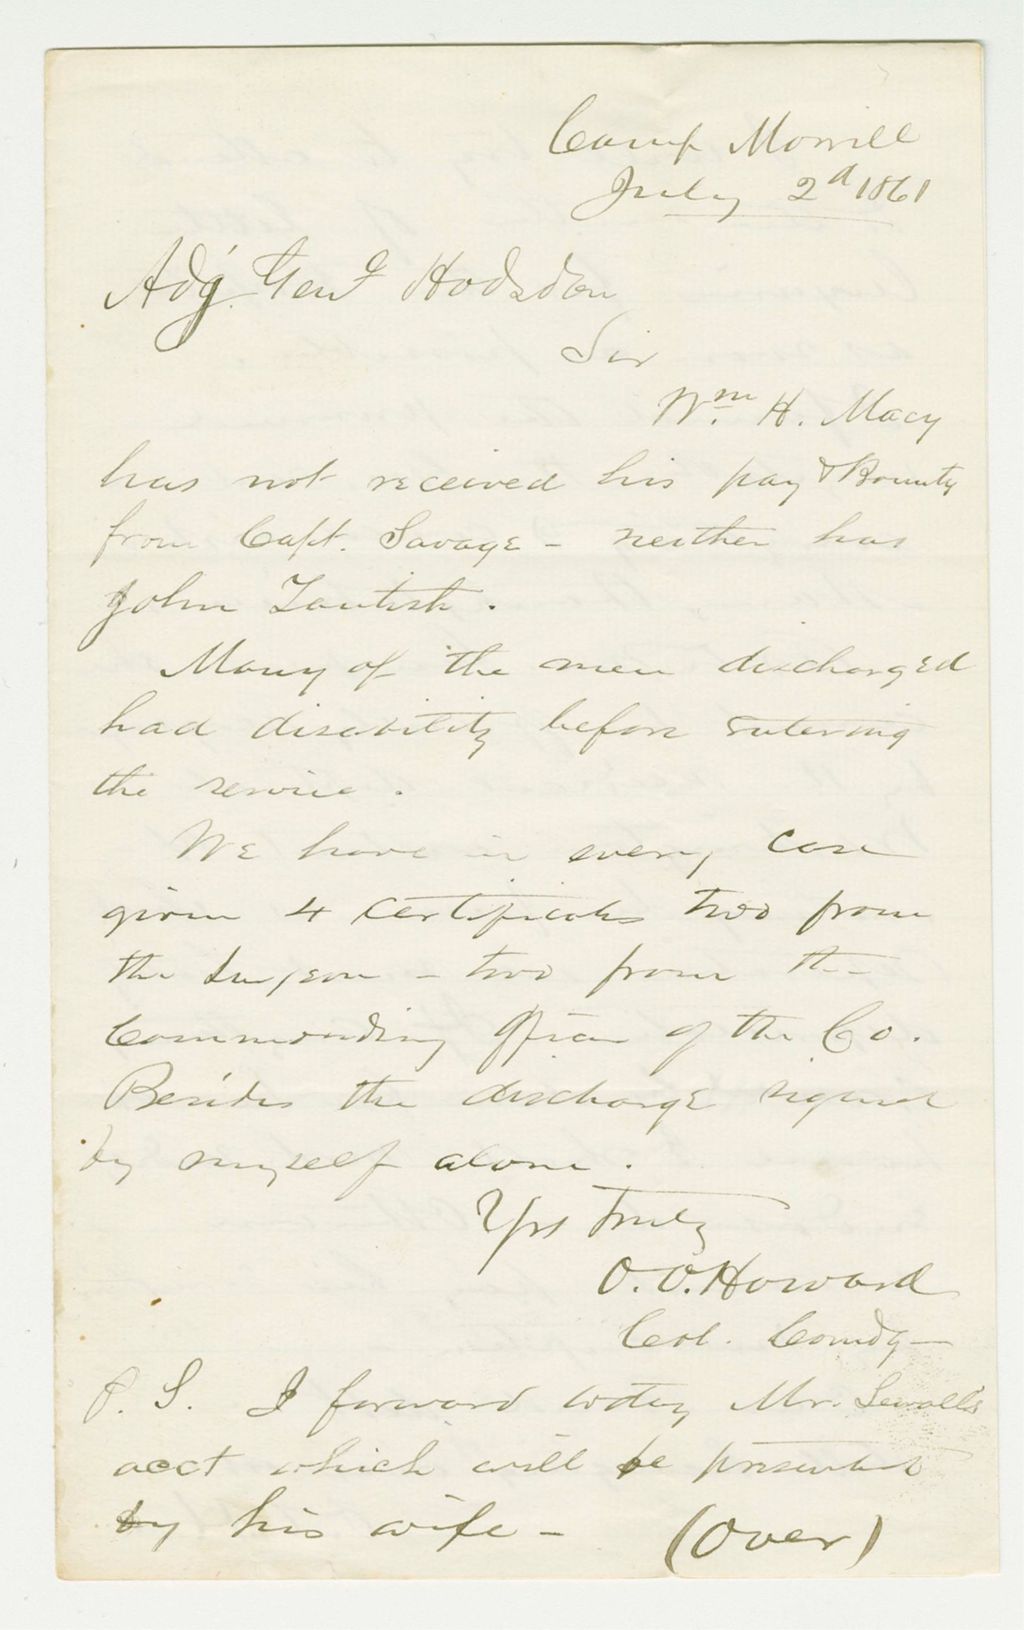 Camp Morrill
July 2d 1861
Adj. Genl Hodsdon
Sir
Wm. H. Macy
has not received his pay & Bounty
from Capt. Savage - neither has
John
Many of the men discharged
had disability before entering
the service.
We have in every case
given 4 certificates two from
the Surgeon - two from the
Commanding Officer of the Co.
Besides the discharge signed
by myself alone.
Yrs truly
O. O. Howard
Col. Comdg
P. S. I forward today Mr. Sewall's
acct which will be presented
by his wife -
(Over)